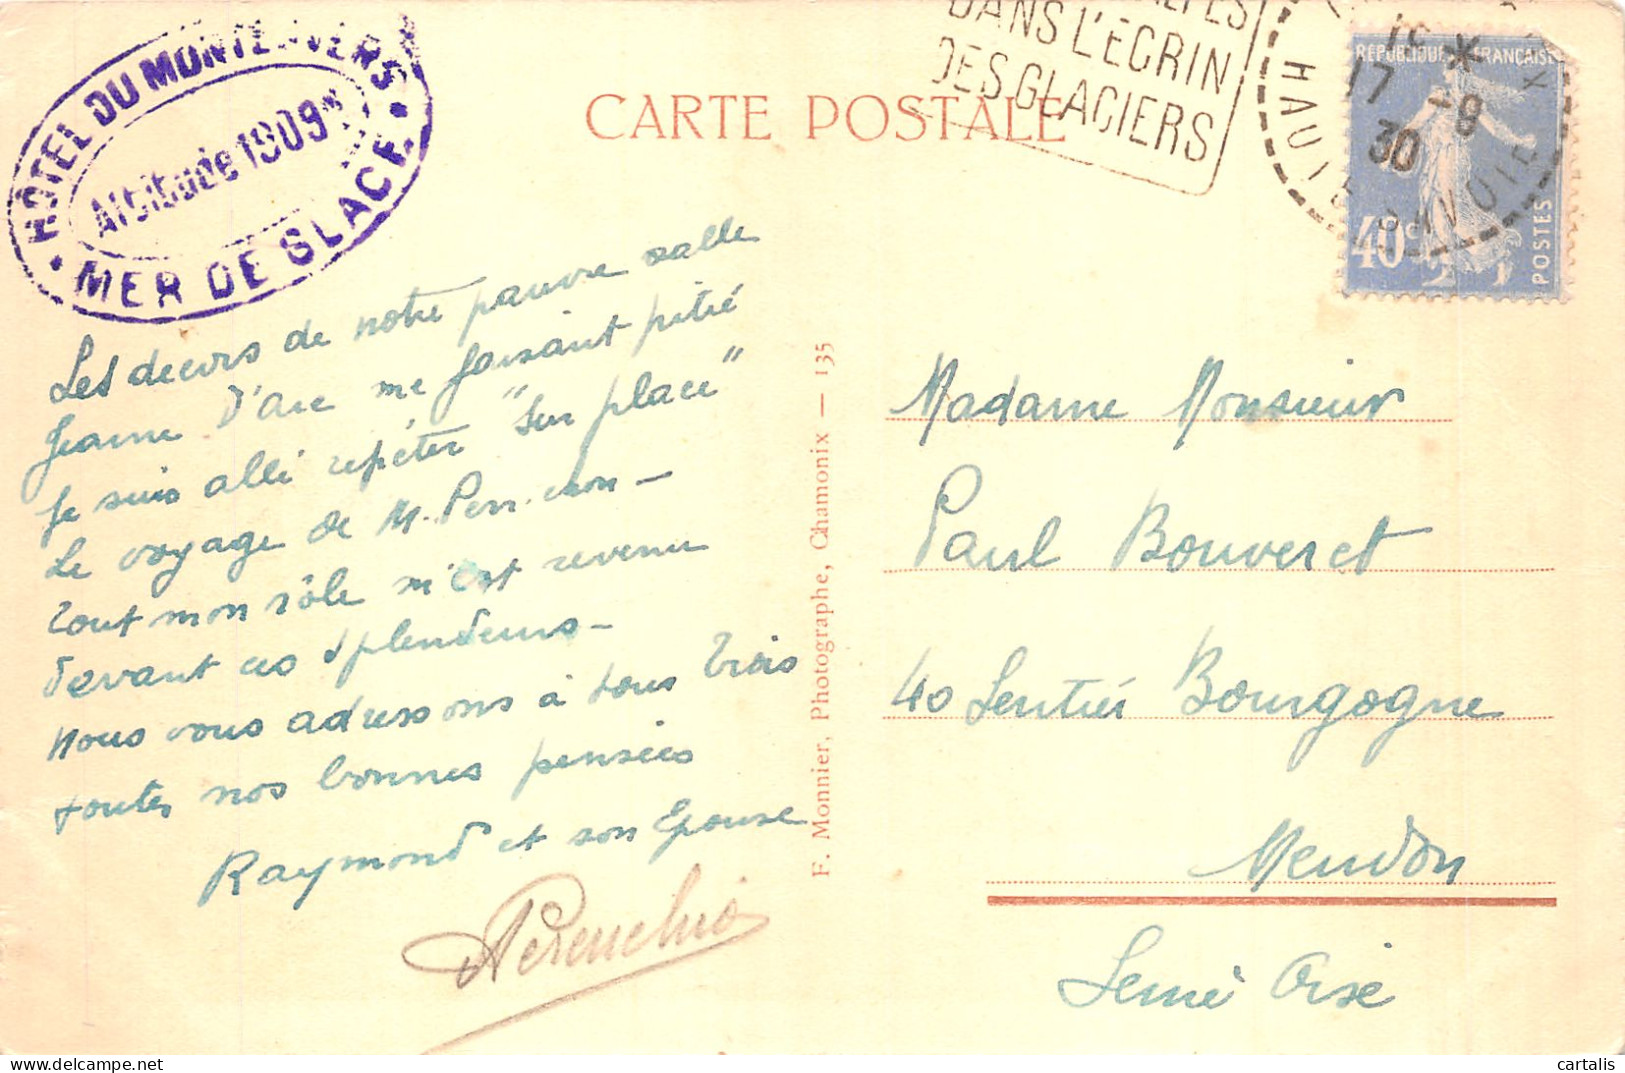 HÔTEL DU MONTENVERS
Altitude 1909m
MER DE GLACE
CARTE POSTALE
DANS L'ÉCRIN
DES GLACIERS
17 -8
30
HAUTE SAVOIE
RÉPUBLIQUE FRANÇAISE
40c
POSTES
Les decors de notre pauvre salle
Jeanne D'arc me faisant pitié
Je suis allé repéter "Sur place"
Le voyage de M. Perrichon –
Tout mon rôle m'est revenu
devant ces splendeurs –
Nous vous adressons à tous trois
toutes nos bonnes pensées
Raymond et son Epouse
F. Monnier, Photographe, Chamonix — 135
Madame Monsieur
Paul Bouveret
40 Sentier Bourgogne
Meudon
Seine Oise
cartalis